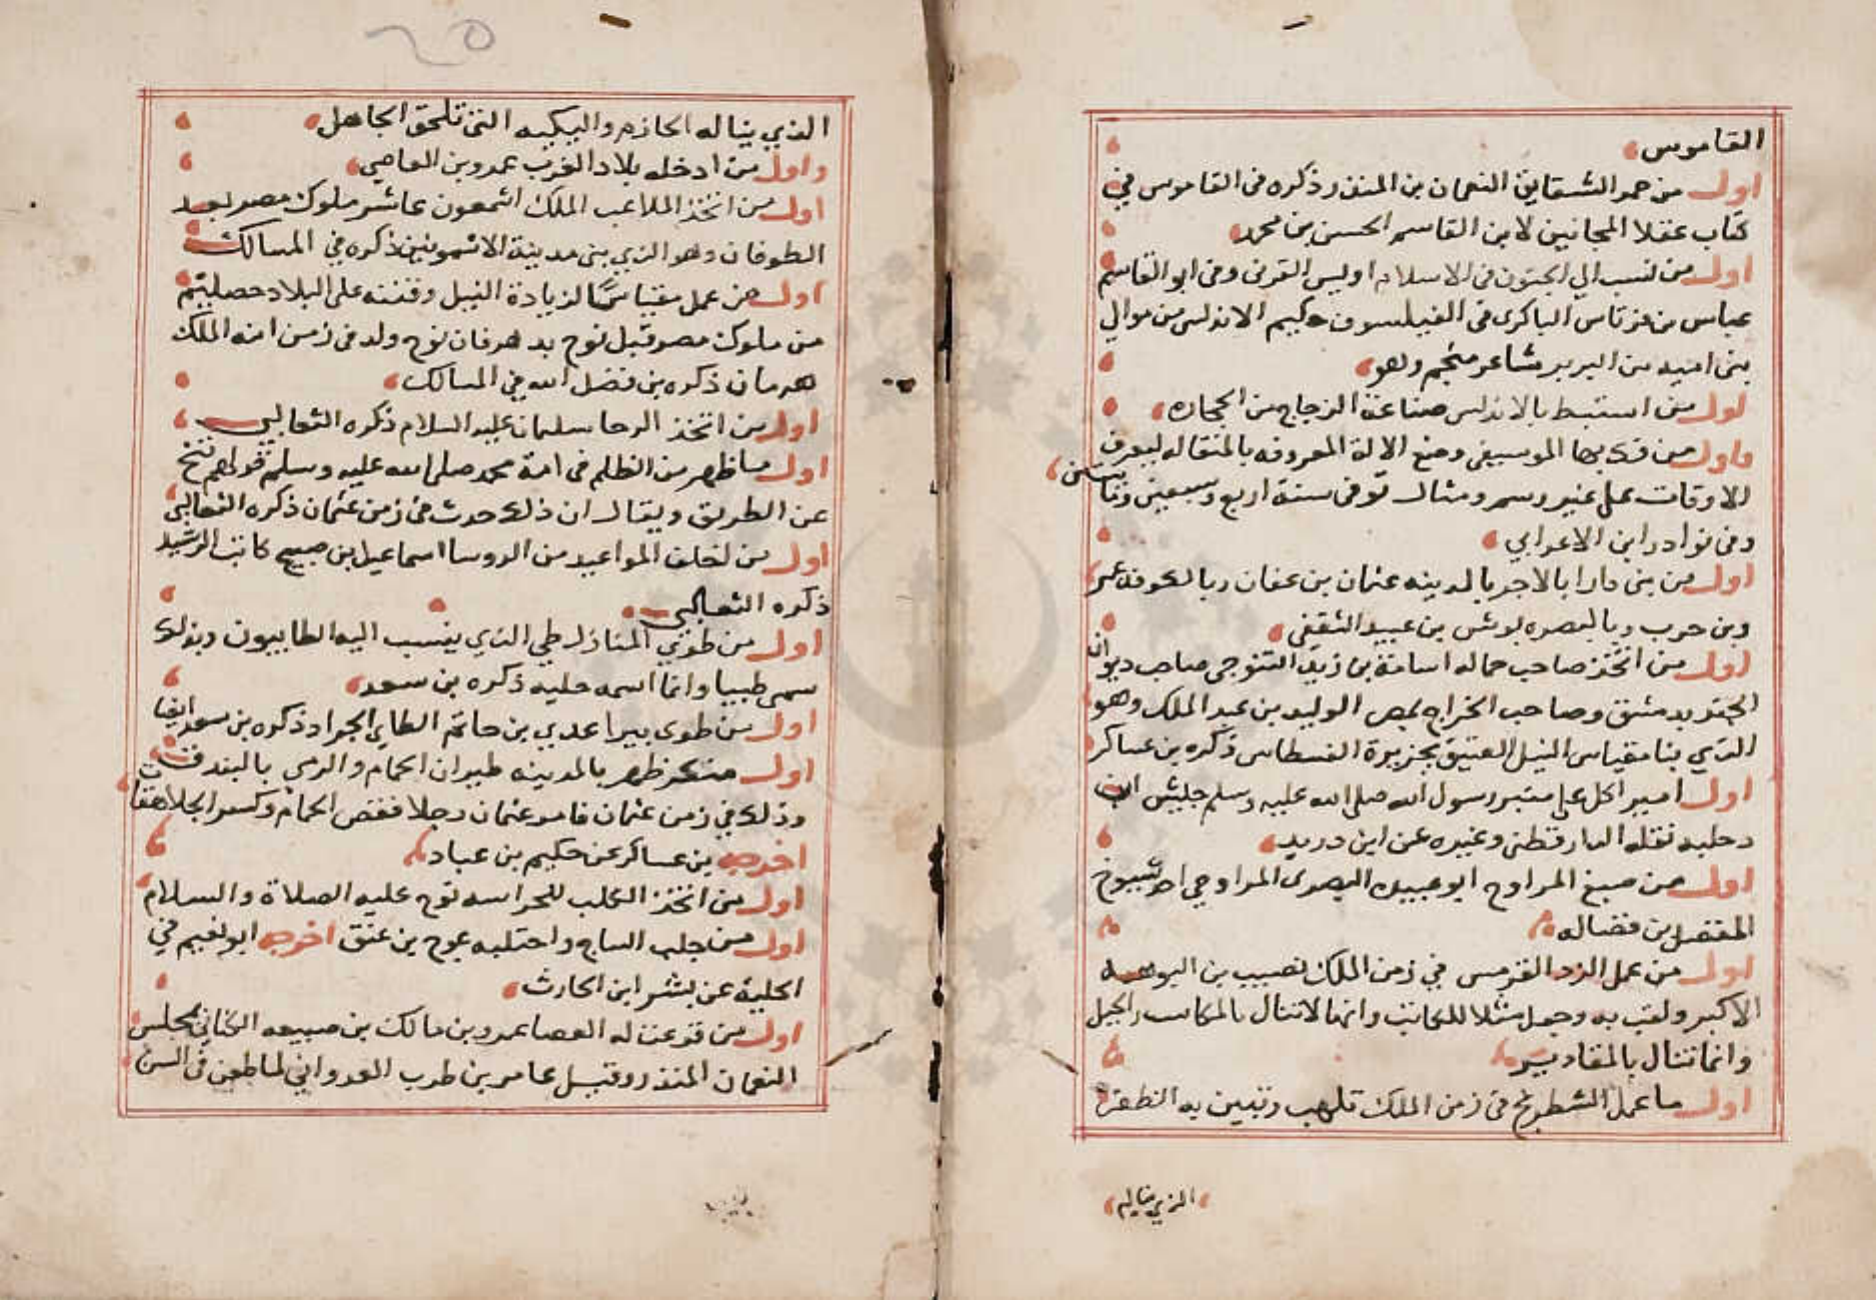 القاموس
اول من حمر الشقايق النعمان بن المنذر ذكره في القاموس في
كتاب عقلا المجانين لابن القاسم الحسن بن محمد
اول من نسب الي الجنون في الاسلام اويس القرني وفي ابو القاسم
عباس بن فرناس الباكري في الفيلسوف حكيم الاندلس من موالي
بني اميه من البربر شاعر منجم وهو
اول من استنبط بالاندلس صناعة الزجاج من الحجاره
واول من فك بها الموسيقي وصنع الالة المعروفه بالمنقاله ليعرف
الاوقات علي غير رسم ومثال توفي سنة اربع وسبعين وما يتين
وفي نوادر ابن الاعرابي
اول من بني دارا بالاجر بالمدينه عثمان بن عفان وبالكوفه عمر
وبن حرب وبالبصره يونس بن عبيد الثقفي
اول من اتخذ صاحب حماله اسامة بن زيد التنوجي صاحب ديوان
الجند بدمشق وصاحب الخراج بمصر الوليد بن عبد الملك وهو
الذي بنا مقياس النيل العتيق بجزيرة الفسطاس ذكره بن عساكر
اول امير اكل علي منبر رسول الله صلي الله عليه وسلم حليش ابن
دحليه نقله الدارقطني وغيره عن ابن دريد
اول من صبغ المراوح ابو عبيده البصري المراوحي احد شيوخ
المفضل بن فضاله
اول من عمل النرد الفرس في زمن الملك نصيب بن
الاكبر ولعب به وجعل مثلا للكاتب وانها لا تنال بالمكاسب والحيل
وانما تنال بالمقادير
اول ما عمل الشطرنج في زمن الملك تلهب وتبين به الظفر
الذي يناله
الذي يناله الحازم والبكيه التي تلحق الجاهل
واول من ادخله بلاد الغرب عمرو بن العاصي
اول من اتخذ الملاعب الملك اشمعون عاشر ملوك مصر بعد
الطوفان وهو الذي بني مدينة الاشمونين ذكره في المسالك
اول من عمل مقياسا لزيادة النيل وقننه علي البلاد حصليتم
من ملوك مصر قبل نوح بد هرفان نوح ولد في زمن ابنه الملك
هرمان ذكره بن فضل الله في المسالك
اول من اتخذ الرحا سليمان عليه السلام ذكره الثعالبي
اول ما ظهر من الظلم في امة محمد صلي الله عليه وسلم قولهم تنح
عن الطريق ويقال ان ذلك حدث في زمن عثمان ذكره الثعالبي
اول من لخلف المواعيد من الروسا اسماعيل بن صبيح كاتب الرشيد
ذكره الثعالبي
اول من طوي المنازل طي الذي ينسب اليه الطاييون وبذلك
سمي طييا وانما اسمه حليه ذكره بن سعد
اول من طوي بيرا عدي بن حاتم الطاي الجواد ذكره بن سعد ايضا
اول منكر ظهر بالمدينه طيران الحمام والرمي بالبندق
وذلك في زمن عثمان فامر عثمان رجلا فقص الحمام وكسر الجلاهقات
اخرجه بن عساكر عن حكيم بن عباد
اول من اتخذ الكلب للحراسه نوح عليه الصلاة والسلام
اول من جلب الساج واحتلبه عوج بن عنق اخرجه ابو نعيم في
الحلية عن بشر ابن الحارث
اول من قرعت له العصا عمرو بن مالك بن ضبيعه الكناني بمجلس
النعمان المنذر وقيل عامر بن طرب العدواني لما طعن في السن